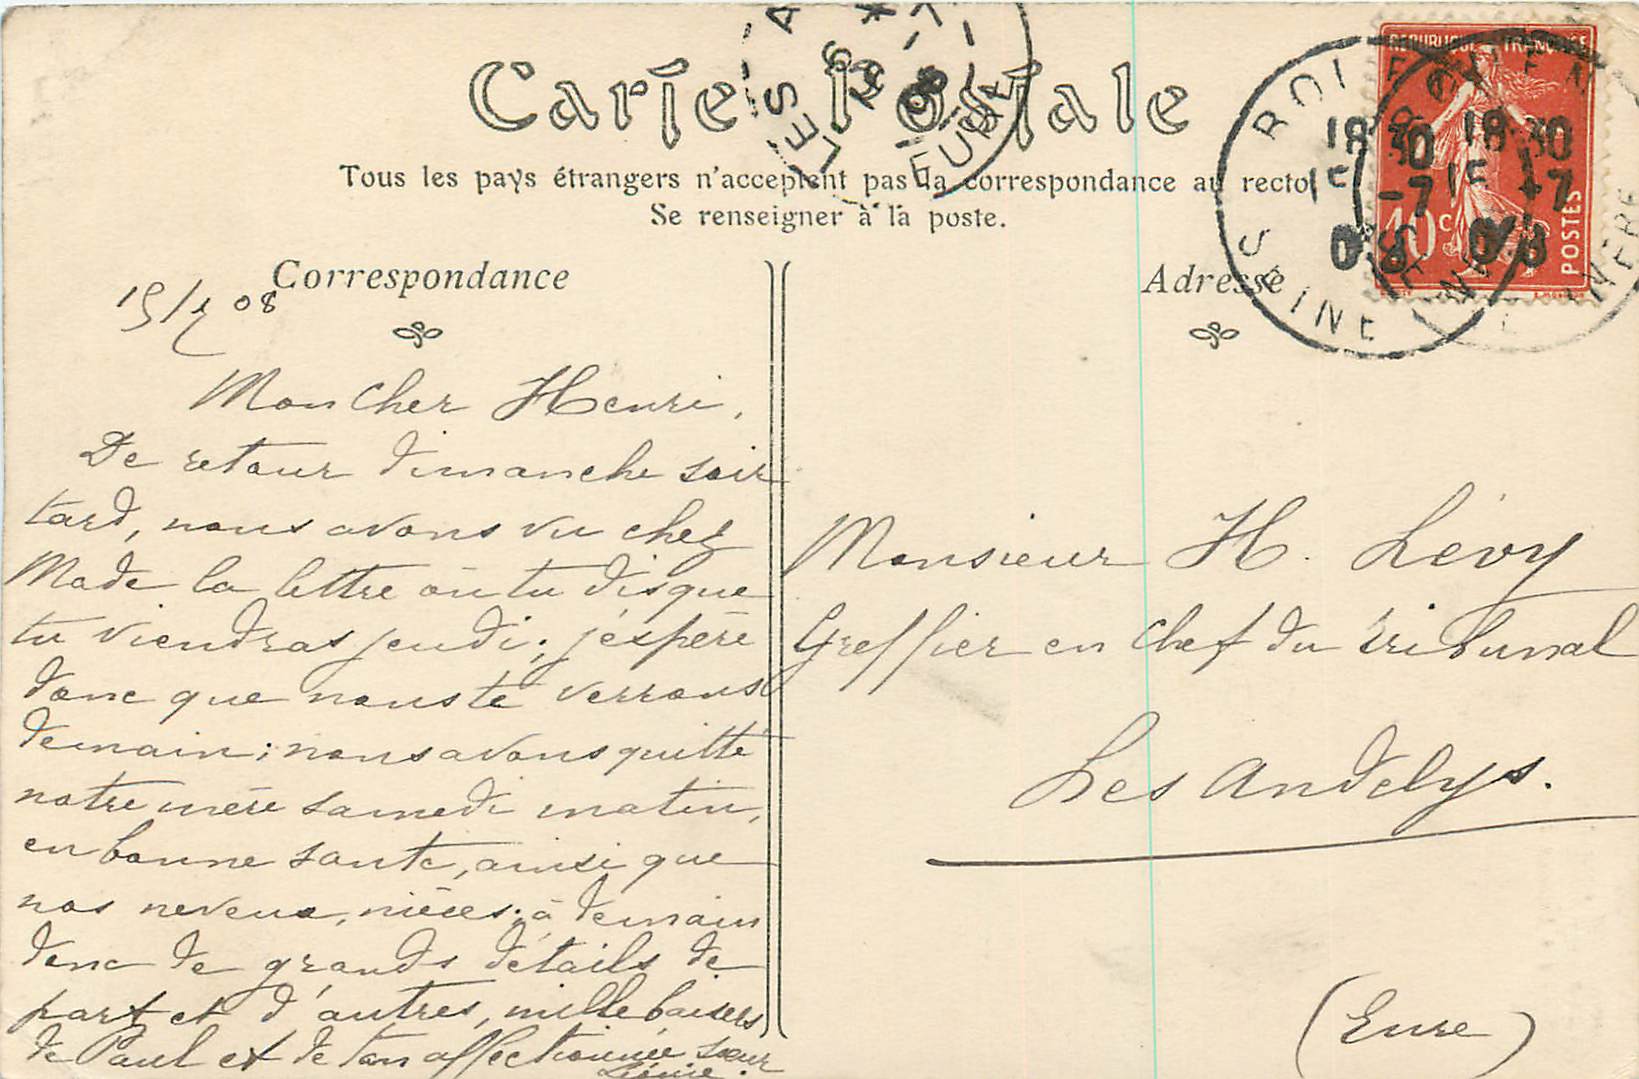 Carte Postale
Tous les pays étrangers n'acceptent pas la correspondance au recto
Se renseigner à la poste.
Correspondance
15/7 08
Mon cher Henri,
De retour dimanche soir
tard, nous avons vu chez
Made la lettre où tu dis que
tu viendras jeudi; j'éspère
donc que nous te verrons
demain; nous avons quitté
notre mère samedi matin,
en bonne santé, ainsi que
nos neveux, nièces; à demain
donc de grands détails de
part et d'autres, mille baisers
de Paul et de ton affectionnée sœur
Léonie.
Adresse
Monsieur H. Lévy
Greffier en chef du tribunal
Les Andelys.
(Eure)
REPUBLIQUE FRANÇAISE
10c
POSTES
ROUEN
18 30
15 -7
08
SEINE INFRE
18 30
15 -7
08
LES A
EURE